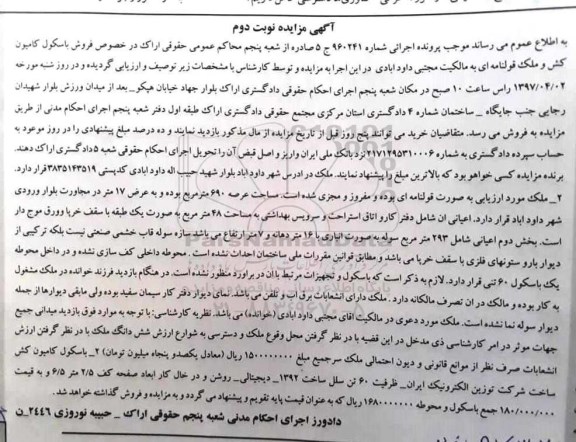 آگهی مزایده نوبت دوم
به اطلاع عموم می رساند موجب پرونده اجرائی شماره ۹۶۰۲۴۱ ج ۵ صادره از شعبه پنجم محاکم عمومی حقوقی اراک در خصوص فروش باسکول کامیون
کش و ملک قولنامه ای به مالکیت مجتبی داود ابادی در این اجرا به مزایده و توسط کارشناس با مشخصات زیر توصیف و ارزیابی گردیده و در روز شنبه مورخه
۱۳۹۷/۰۴/۰۲ راس ساعت ۱۰ صبح در مکان شعبه پنجم اجرای احکام حقوقی دادگستری اراک بلوار جهاد خیابان هپکو_ بعد از میدان ورزش بلوار شهیدان
رجایی جنب جایگاه _ ساختمان شماره ۴ دادگستری استان مرکزی مجتمع حقوقی دادگستری اراک طبقه اول دفتر شعبه پنجم اجرای احکام مدنی از طریق
مزایده به فروش می رسد. متقاضیان خرید می توانند پنج روز قبل از تاریخ مزایده از مال مذکور بازدید نمایند و ده درصد مبلغ پیشنهادی را در روز موعود به
حساب سپرده دادگستری به شماره نزد بانک ملی ایران واریز و اصل قبض آن را تحویل اجرای احکام حقوقی شعبه ۵ دادگستری اراک دهند.
برنده مزایده کسی خواهد بود که بالاترین مبلغ را پیشنهاد نمایند. ملک در ادرس شهر داود اباد بلوار شهید حبیب اله داود ابادی کدپستی ۳۸۳۵۱۴۳۵۱۹ قرار دارد.
۲_ ملک مورد ارزیابی به صورت قولنامه ای بوده و مفروز و مجزی شده است. مساحت عرصه ۶۹۰ مترمربع بوده و به عرض ۱۷ متر در مجاورت بلوار ورودی
شهر داود اباد قرار دارد. اعیانی ان شامل دفتر کارو اتاق استراحت و سرویس بهداشتی به مساحت ۴۸ متر مربع به صورت یک طبقه با سقف خرپا وورق موج دار
است. بخش دوم اعیانی شامل ۲۹۳ متر مربع سوله به صورت انباری با ۱۶ متر دهانه و ۷ متر ارتفاع می باشد سازه سوله قاب خشمی صنعتی نیست بلکه ترکیبی از
دیوار بارو ستونهای فلزی با سقف خرپا می باشد و مطابق قوانین مقررات ملی ساختمان احداث نشده است. محوطه داخلی کف سازی نشده و در داخل محوطه
یک باسکول ۶۰ تنی قرار دارد. لازم به ذکر است که باسکول و تجهیزات مرتبط با آن در براورد منظور نشده است. در هنگام بازدید فرزند خوانده در ملک مشغول
به کار بوده و مالک در ان تصرف مالکانه دارد. ملک دارای انشعابات برق اب و تلفن می باشد. نمای دیوار دفتر کار سیمان سفید بوده ولی مابقی دیوارها از جمله
دیوار سوله نما نشده است. ملک مورد دعوی در مالکیت اقای مجتبی داود ابادی (خوانده) می باشد. نظریه کارشناسی: با توجه به موارد فوق بازدید میدانی جمیع
جهات موثر در امر کارشناسی ذی مدخل در این قضیه با در نظر گرفتن محل وقوع ملک و دسترسی به شوارع ارزش شش دانگ ملک با در نظر گرفتن ارزش
انشعابات صرف نظر از موانع قانونی و دیون احتمالی ملک سرجمع مبلغ ۱۵۰۰۰۰۰۰۰۰ ریال (معادل یکصدو پنجاه میلیون تومان) ۲_ باسکول کامیون کش
ساخت شرکت توزین الکترونیک ایران_ ظرفیت ۶۰ تن سال ساخت ۱۳۹۲_ دیجیتالی_ روشن و در حال کار ابعاد صفحه کف ۲/۵ متر ۶/۵ و به قیمت
۱۸۰/۰۰۰/۰۰۰ جمع باسکول و محوطه ۱۶۸۰۰۰۰۰۰۰ ریال که به عنوان قیمت پایه تقویم و پیشنهادمی گردد و به مزایده و فروش گذاشته خواهد شد.
دادورز اجرای احکام مدنی شعبه پنجم حقوقی اراک _ حبیبه نوروزی ۲۴۴۶_ن